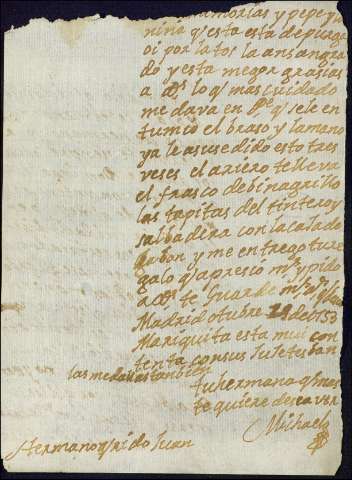 memorias y pepe y
niña q esta esta de purga
oi por la tos la an sangra
do y esta megor grasias
a Ds lo q mas cuidado
me dava en Pe q se le en
tumio el braso y la mano
ya le a susedido esto tres
veses el ariero te lleva
el frasco de binagrillo
las tapitas del tintero y
salbadera con la calado
gabon y me entrego tu re
galo q apresio mo y pido
a Ds te Guarde ms as
Madrid otubre 29 de 1753
Mariquita esta mui con
tenta con sus
las medallas tanbien
tu hermana q mas
te quiere desea ver
Michaela
Hermano q rido Juan